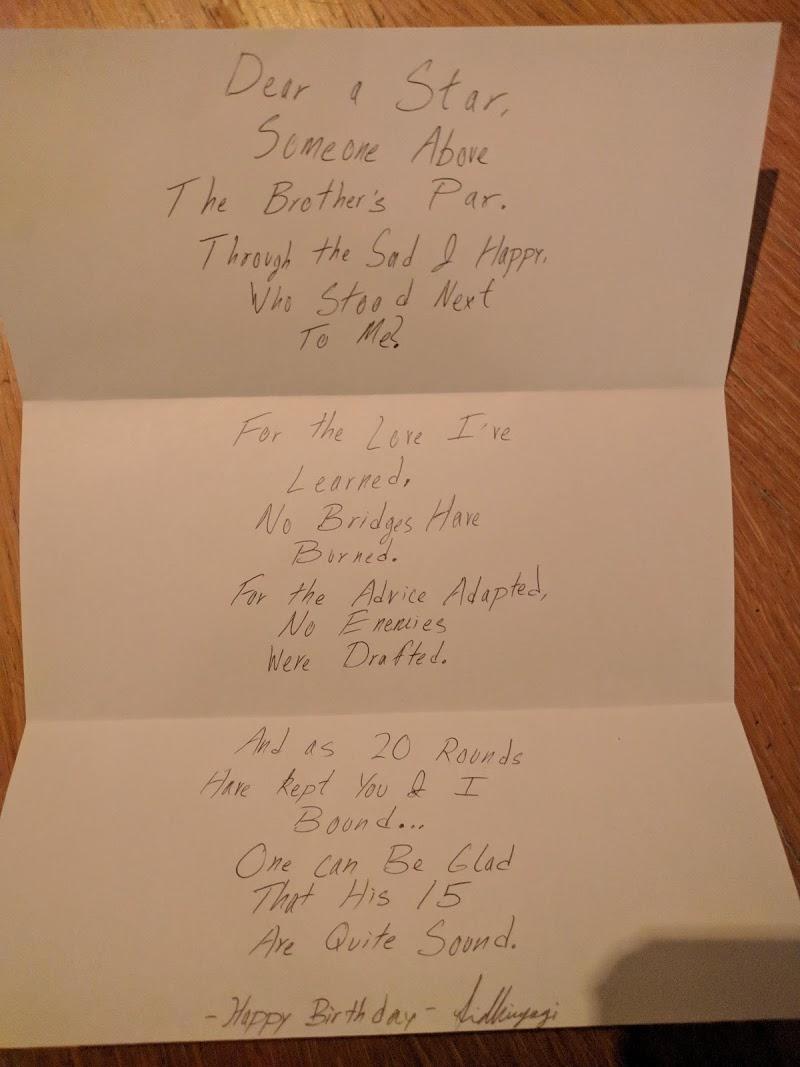 Dear a Star,
Someone Above
The Brother's Par.
Through the Sad & Happy,
Who Stood Next
To Me?
For the Love I've
Learned,
No Bridges Have
Burned.
For the Advice Adapted,
No Enemies
Were Drafted.
And as 20 Rounds
Have kept You & I
Bound...
One can Be Glad
That His 15
Are Quite Sound.
-Happy Birthday-